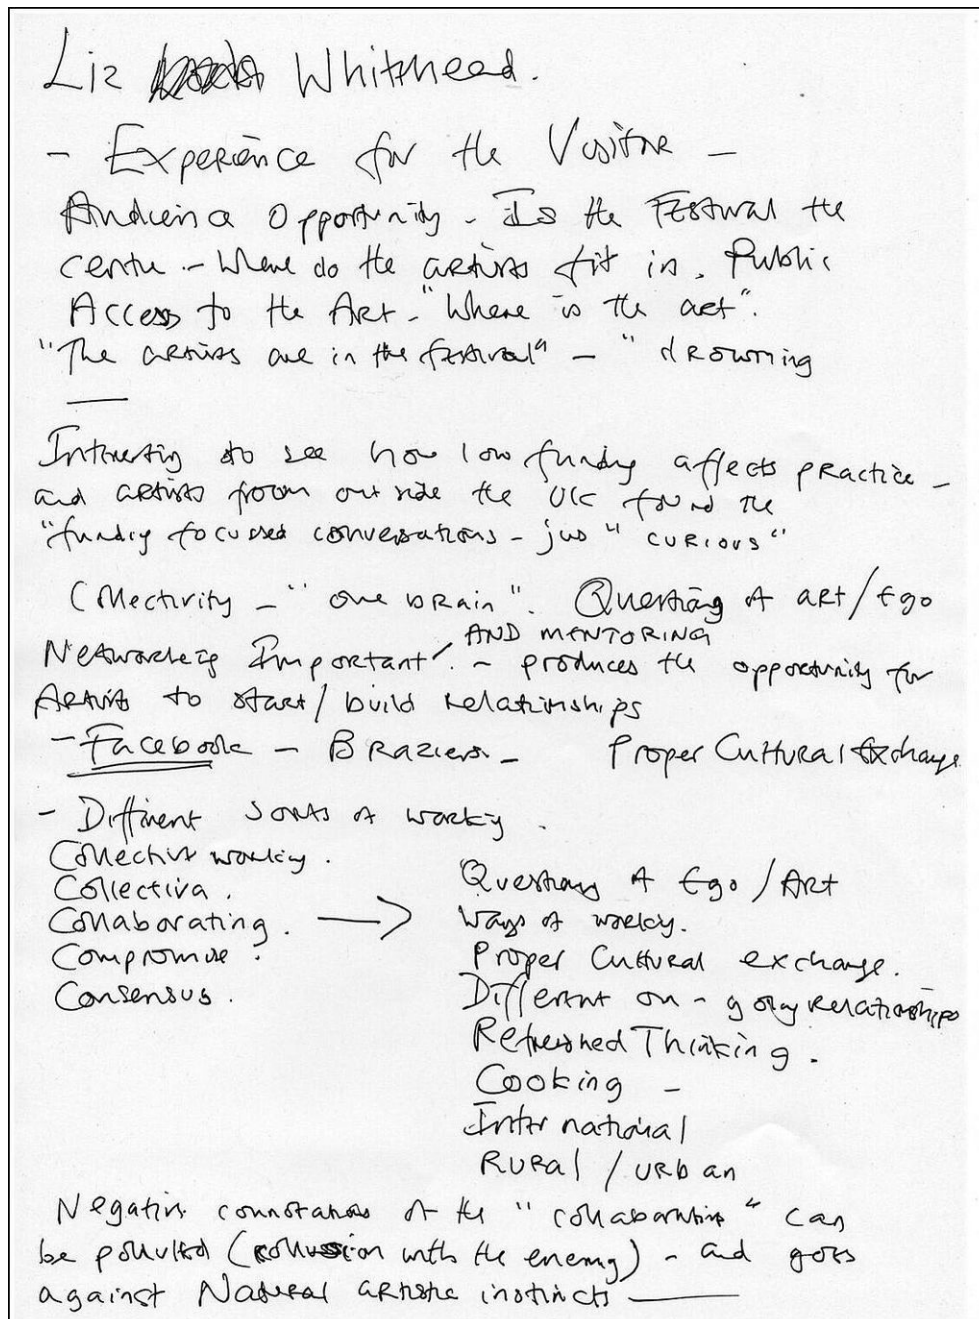 Liz Whitehead.
- Experience for the Visitor -
Audience Opportunity - Is the Festival the
centre - Where do the artists fit in. Public
Access to the Art - "Where is the art".
"The artists are in the festival" - "drowning
Interesting to see how low funding affects practice -
and artists from outside the UK found the
"funding focussed conversations - "curious"
Collectivity - "one brain". Questions of art/Ego
AND MENTORING
Networking Important - produces the opportunity for
Artists to start/build relationships
- Facebook - Braziers - Proper Cultural Exchange
- Different sorts of working.
Collective working.
Collective.
Collaborating. →
Compromise.
Consensus.
Questions of Ego/Art
Ways of working.
Proper Cultural exchange.
Different on-going Relationships
Refreshed Thinking.
Cooking -
International
RURal/URban
Negative connotations of the "collaborative" can
be polluted (collusion with the enemy) - and goes
against Natural artistic instincts -